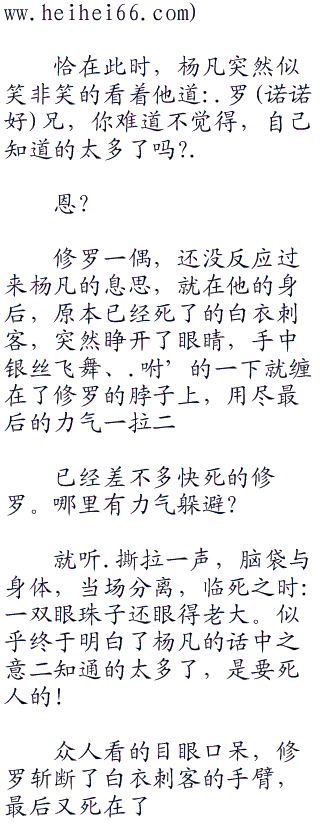 ww.heihei66.com)
恰在此时，杨凡突然似
笑非笑的看着他道:.罗(诺诺
好)兄，你难道不觉得，自己
知道的太多了吗?.
恩？
修罗一偶，还没反应过
来杨凡的息思，就在他的身
后，原本已经死了的白衣刺
客，突然睁开了眼睛，手中
银丝飞舞、.咐’的一下就缠
在了修罗的脖子上，用尽最
后的力气一拉二
已经差不多快死的修
罗。哪里有力气躲避？
就听.撕拉一声，脑袋与
身体，当场分离，临死之时:
一双眼珠子还眼得老大。似
乎终于明白了杨凡的话中之
意二知通的太多了，是要死
人的！
众人看的目眼口呆，修
罗斩断了白衣刺客的手臂，
最后又死在了